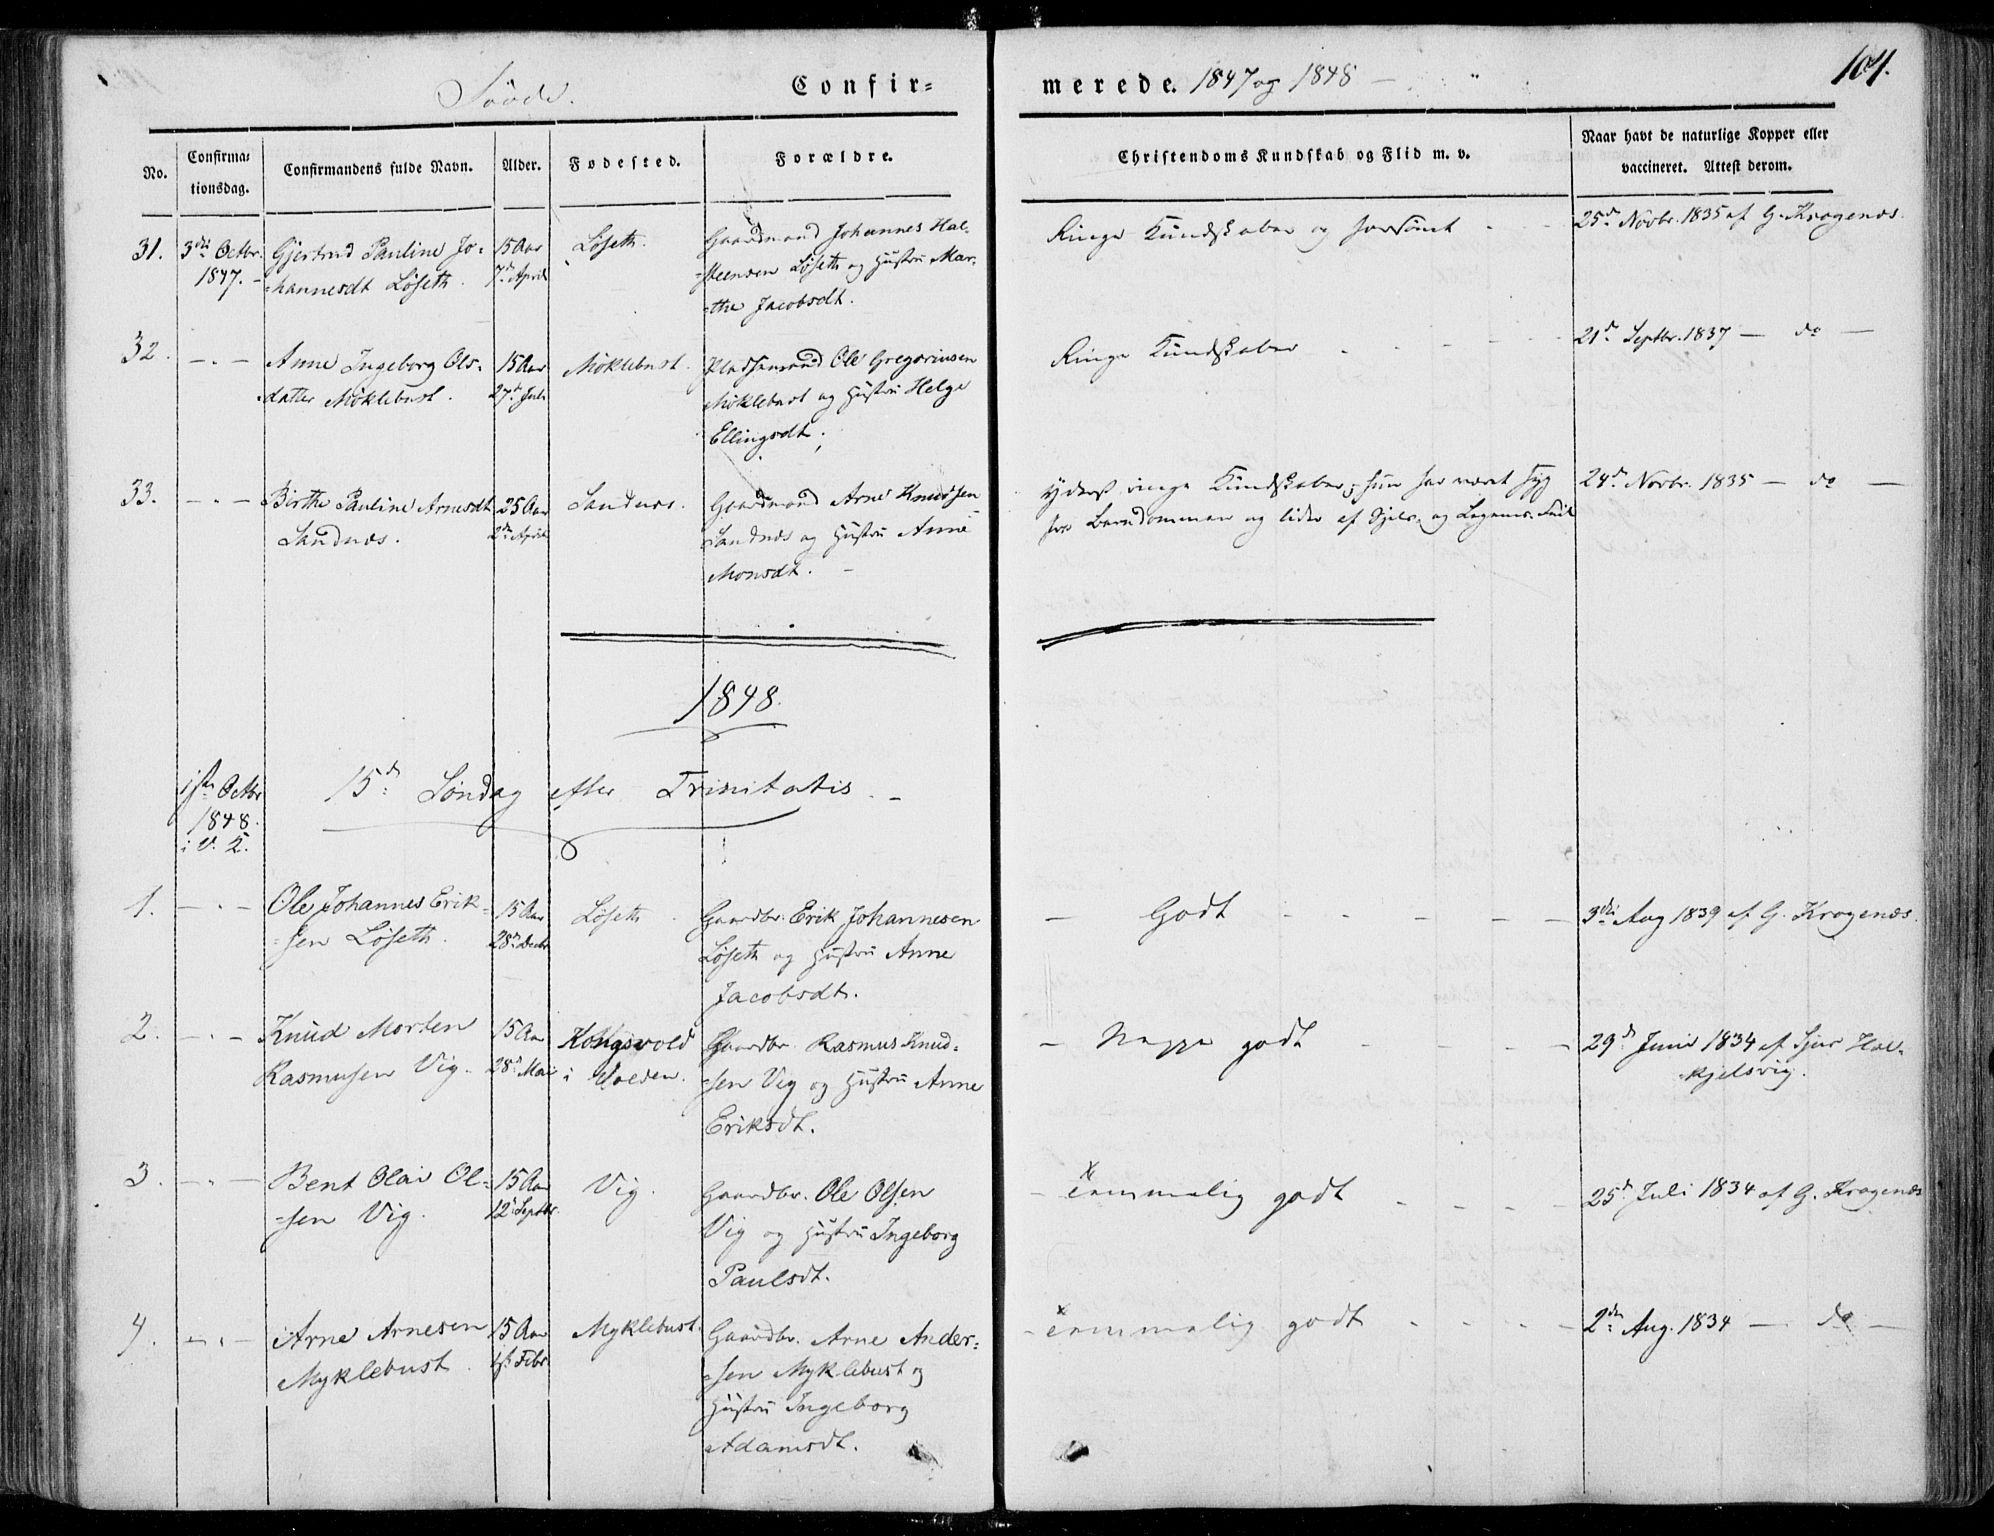 104.
Confir=
merede. 1847 og 1848 —
No.
Confirma=
tionsdag.
Confirmandens fulde Navn.
Alder.
Fødested.
Forældre.
Christendoms Kundskab og Flid m. v.
Naar havt de naturlige Kopper eller
vaccineret. Attest derom.
31.
3die Octbr.
1847. -
Gjertrud Pauline Jo-
-hannesdt Løseth.
15 Aar
7de April
Løseth.
Gaardmand Johannes Hal-
-steensen Løseth og Hustru Mar-
-the Jacobsdt.
Ringe Kundskaber og forsömt
25de Novbr. 1835 af G. Kragenæs.
32.
— " —
Anne Ingeborg Ols-
datter Möklebust.
15 Aar
27de Juli
Möklebust.
Pladsmand Ole Gregoriusen
Möklebust og Hustru Helge
Ellingsdt.
Ringe Kundskaber
21de Septbr. 1837 — do —
33.
— " —
Birthe Pauline Arnesdt
Sandnæs.
25 Aar
2den April
Sandnæs.
Gaardmand Arne Knudsen
Sandnæs og Hustru Anne
Monsdt. —
Yderst ringe Kundskaber; hun har været syg
fra Barndommen og lider af Sjels- og Legems-
24de Novbr. 1835 — do —
1848.
1ste Octbr
1848.
i V. K.
15de Søndag efter Trinitatis. —
1.
— " —
Ole Johannes Erik-
-sen Løseth.
15 Aar
28de Decbr
Løseth.
Gaardbr. Erik Johannesen
Løseth og Hustru Anne
Jacobsdt.
— Godt
3die Aug 1839 af G. Kragenæs.
2.
— " —
Knud Morten
Rasmusen Vig.
15 Aar
28de Mai
Kongsvold
i Volden.
Gaardbr. Rasmus Knud-
-sen Vig og Hustru Anne
Eriksdt.
— Neppe godt
29de Junii 1834 af Sjur Hal-
-kjelsvig.
3.
— " —
Bent Olai Ol-
-sen Vig.
15 Aar
12te Septbr.
Vig.
Gaardbr. Ole Olsen
Vig og Hustru Ingeborg
Paulsdt.
— temmelig godt
25de Juli 1834 af G. Kragenæs
4.
— " —
Arne Arnesen
Myklebust.
15 Aar
1ste Febr.
Myklebust.
Gaardbr. Arne Ander-
-sen Myklebust og
Hustru Ingeborg
Adamsdt.
— temmelig godt
2den Aug. 1834 — do —